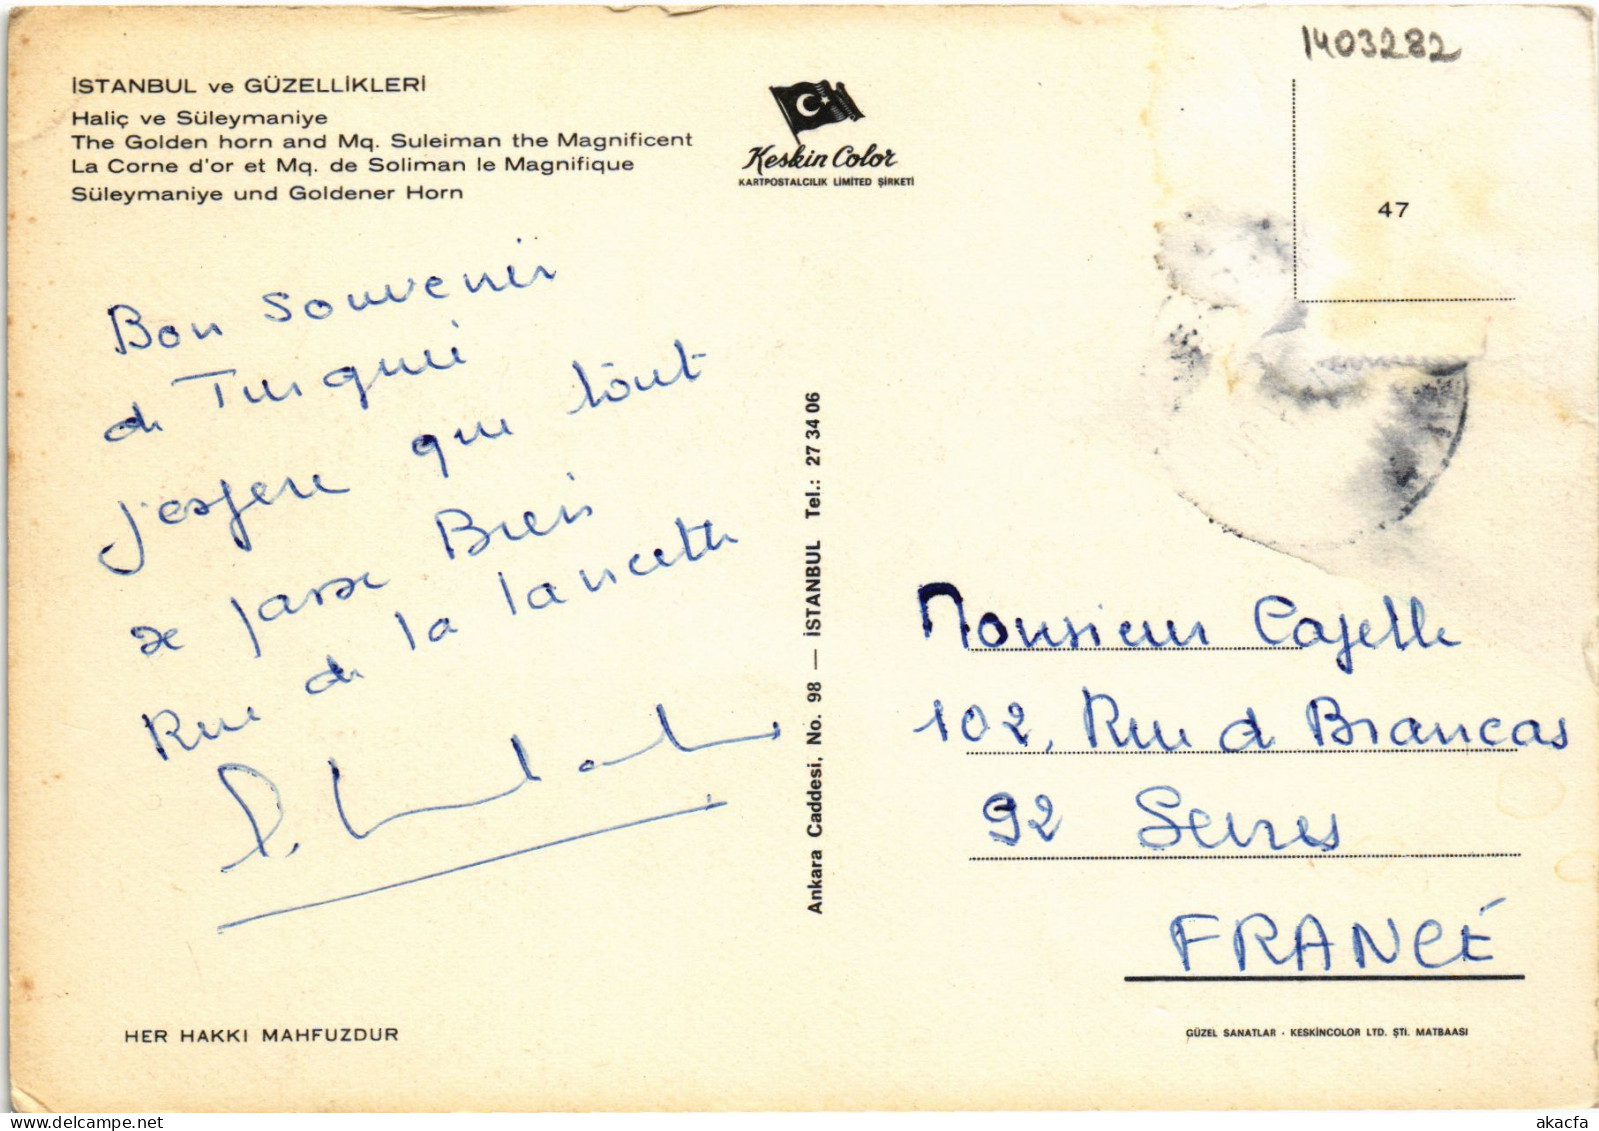 1403282
İSTANBUL ve GÜZELLİKLERİ
Haliç ve Süleymaniye
The Golden horn and Mq. Suleiman the Magnificent
La Corne d'or et Mq. de Soliman le Magnifique
Süleymaniye und Goldener Horn
Keskin Color
KARTPOSTALCILIK LIMITED ŞİRKETİ
47
Bon souvenir
de Turquie
j'espere que tout
se passe Bien
Rue de la lancette
Ankara Caddesi, No. 98 — İSTANBUL Tel.: 27 34 06
Monsieur Capelle
102, Rue de Brancas
92 Sevres
FRANCE
HER HAKKI MAHFUZDUR
GÜZEL SANATLAR - KESKİNCOLOR LTD. ŞTİ. MATBAASI
akacfa